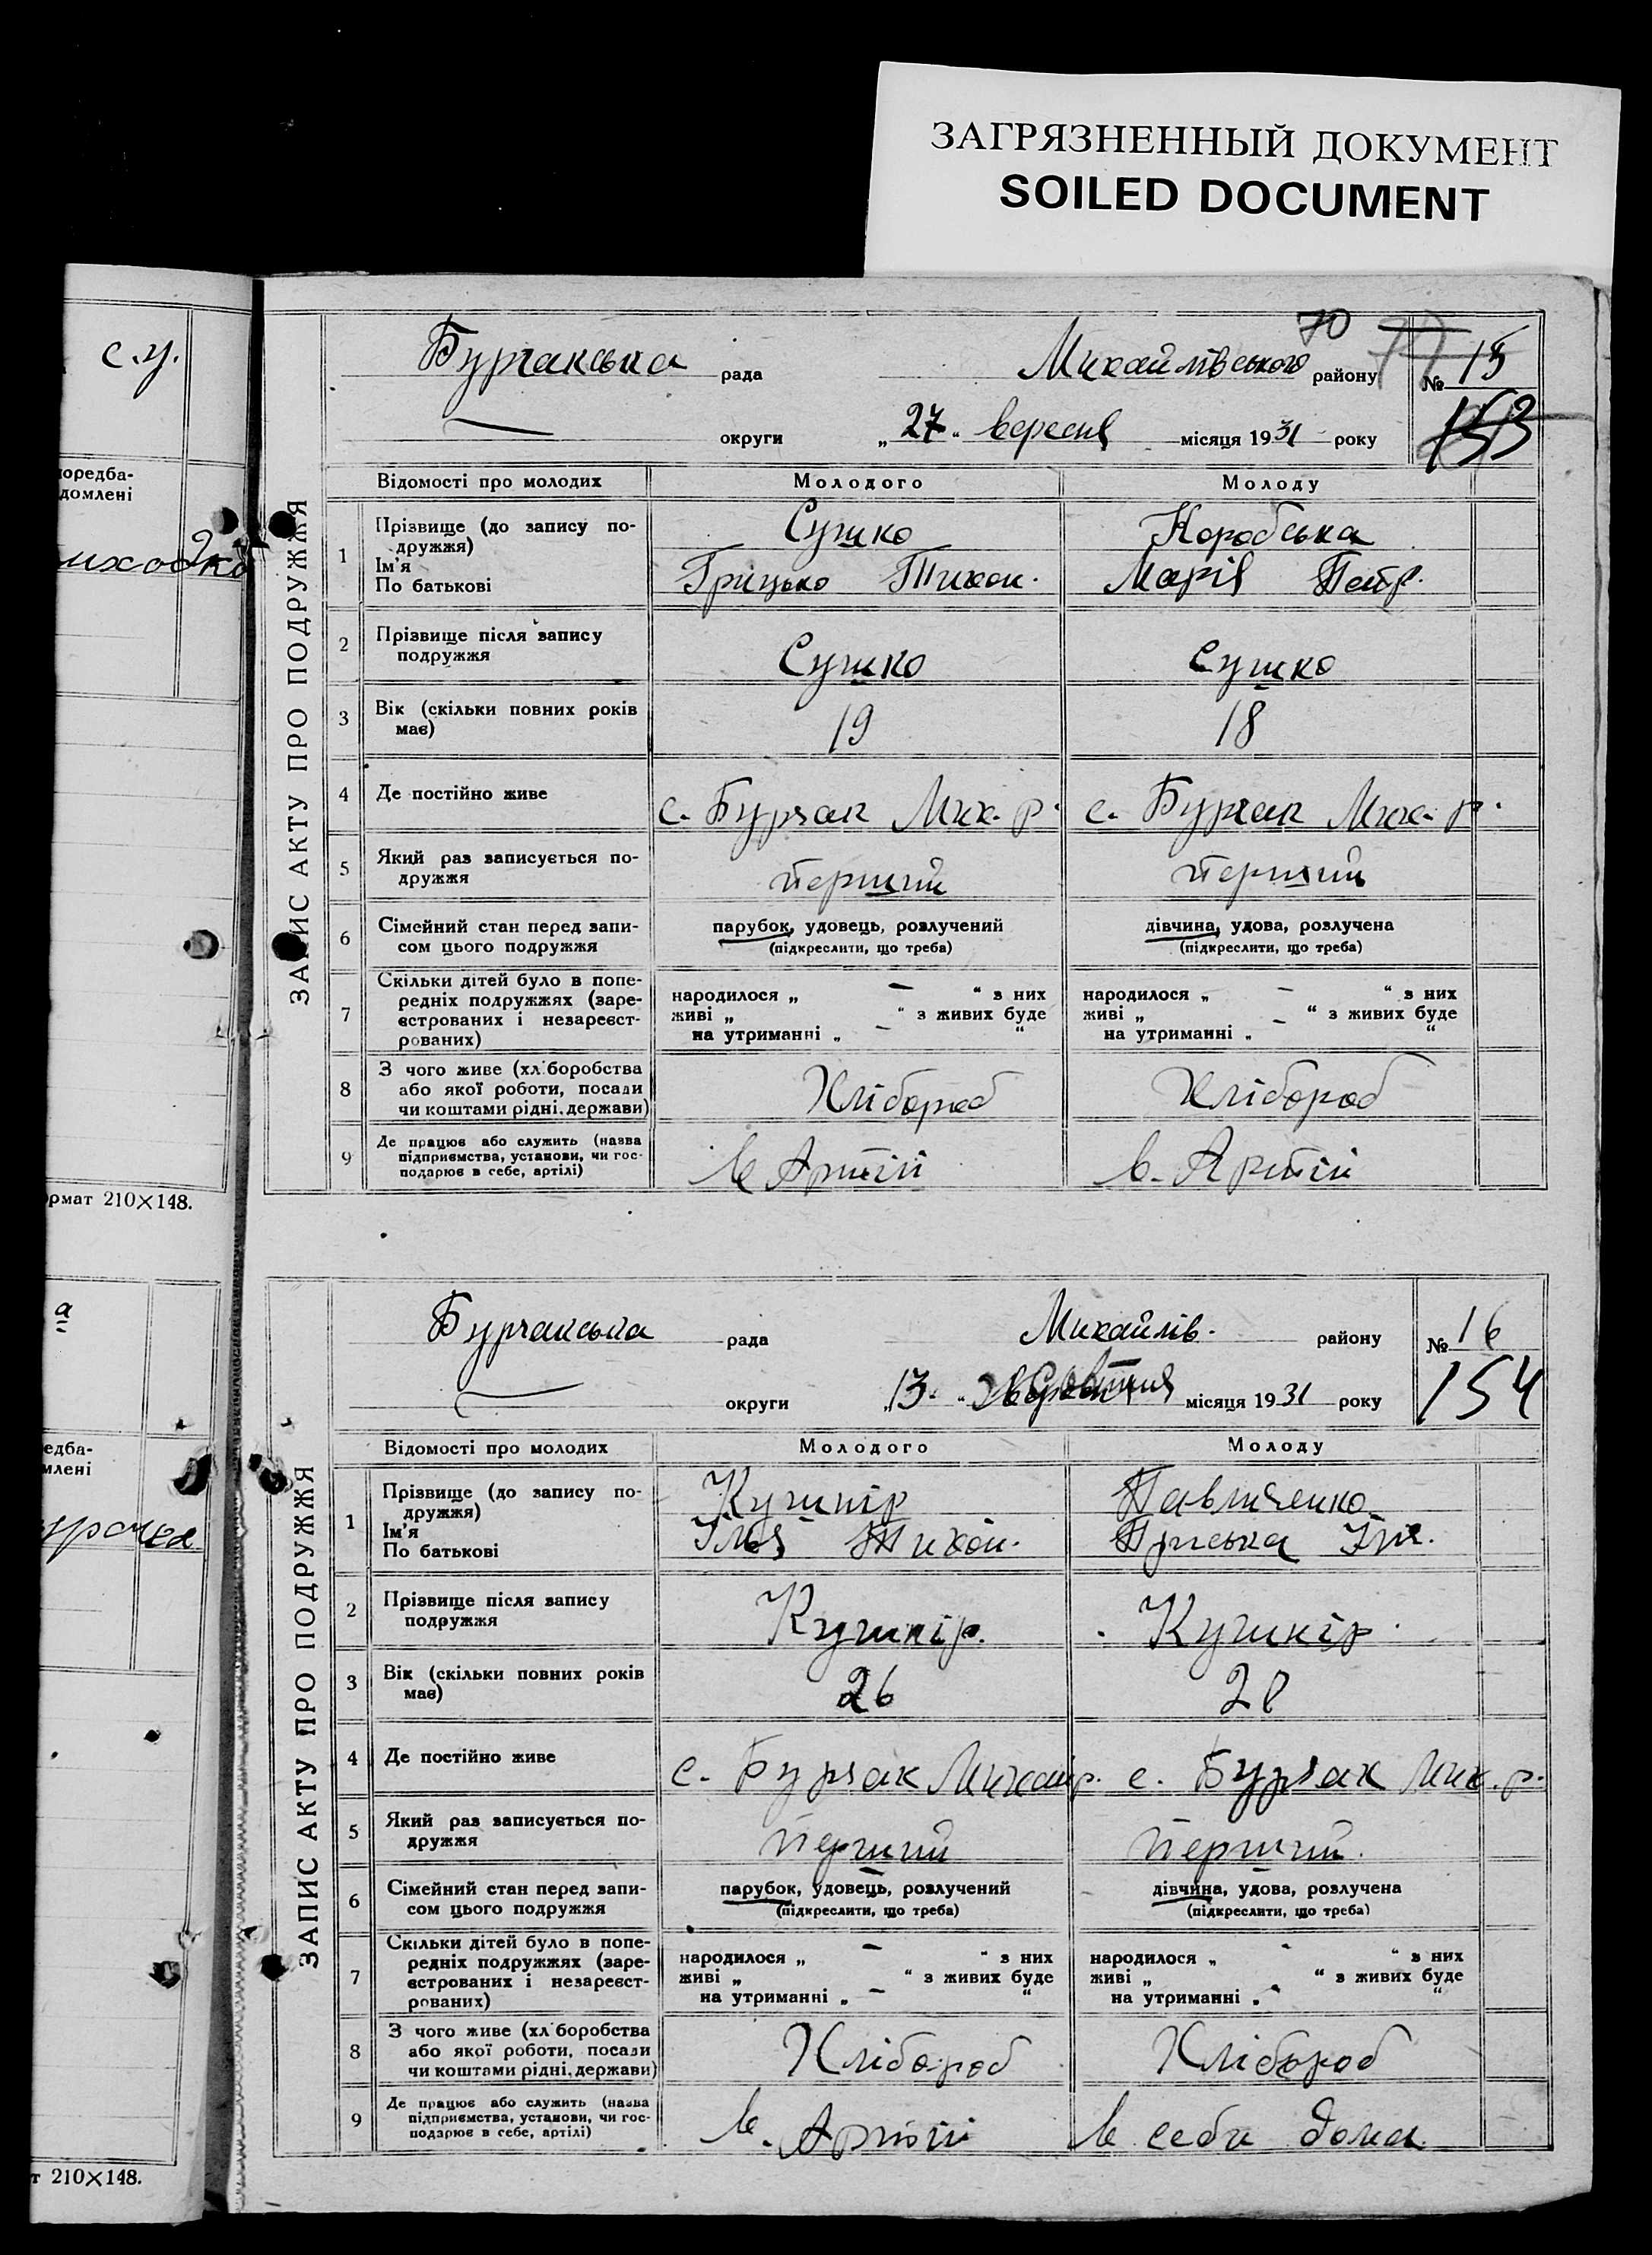 ЗАГРЯЗНЕННЫЙ ДОКУМЕНТ
SOILED DOCUMENT
с.у.
поредба-
домлені
иходко
рмат 210×148.
а
едба-
млені
т 210×148.
ЗАПИС АКТУ ПРО ПОДРУЖЖЯ
70 77
Бурчакська рада Михайлівського району № 15
округи „27“ вересня місяця 1931 року 153
Відомості про молодих Молодого Молоду
1 Прізвище (до запису по-
дружжя) Сушко Коробська
Ім'я
По батькові Грицько Тихон. Марія Петр.
2 Прізвище після запису
подружжя Сушко Сушко
3 Вік (скільки повних років
має) 19 18
4 Де постійно живе с. Бурчак Мих. р. с. Бурчак Мих. р.
5 Який раз записується по-
дружжя перший перший
6 Сімейний стан перед запи-
сом цього подружжя
парубок, удовець, розлучений дівчина, удова, розлучена
(підкреслити, що треба) (підкреслити, що треба)
7 Скільки дітей було в попе-
редніх подружжях (заре-
єстрованих і незареєст-
рованих)
народилося „ — “ з них народилося „ — “ з них
живі „ “ з живих буде живі „ “ з живих буде
на утриманні „ — “ на утриманні „ — “
8 З чого живе (хліборобства
або якої роботи, посади
чи коштами рідні, держави) Хлібороб Хлібороб
9 Де працює або служить (назва
підприємства, установи, чи гос-
подарює в себе, артілі) в Артілі в. Артілі
ЗАПИС АКТУ ПРО ПОДРУЖЖЯ
Бурчакська рада Михайлів. району № 16
округи „13“ Жовтня місяця 1931 року 154
Відомості про молодих Молодого Молоду
1 Прізвище (до запису по-
дружжя) Кушнір Павличенко
Ім'я
По батькові Ілля Тихон. Пріська
2 Прізвище після запису
подружжя Кушнір. Кушнір.
3 Вік (скільки повних років
має) 26 28
4 Де постійно живе с. Бурчак Михай р. с. Бурчак Мих. р.
5 Який раз записується по-
дружжя перший перший.
6 Сімейний стан перед запи-
сом цього подружжя
парубок, удовець, розлучений дівчина, удова, розлучена
(підкреслити, що треба) (підкреслити, що треба)
7 Скільки дітей було в попе-
редніх подружжях (заре-
єстрованих і незареєст-
рованих)
народилося „ — “ з них народилося „ - “ з них
живі „ “ з живих буде живі „ “ з живих буде
на утриманні „ — “ на утриманні „ - “
8 З чого живе (хліборобства
або якої роботи, посади
чи коштами рідні, держави) Хлібороб Хлібороб
9 Де працює або служить (назва
підприємства, установи, чи гос-
подарює в себе, артілі) в. Артілі в себи дома